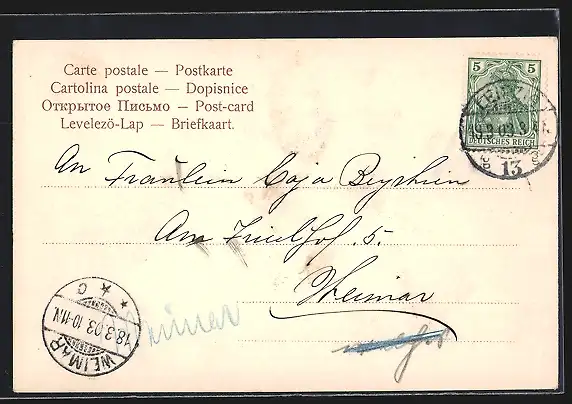 Carte postale — Postkarte
Cartolina postale — Dopisnice
Открытое Письмо — Post-card
Levelező-Lap — Briefkaart.
5 5
DEUTSCHES REICH
13
An Fräulein
Am Friedhof. 5.
Weimar
WEIMAR
18.3.03.10-11.N.
Weimar